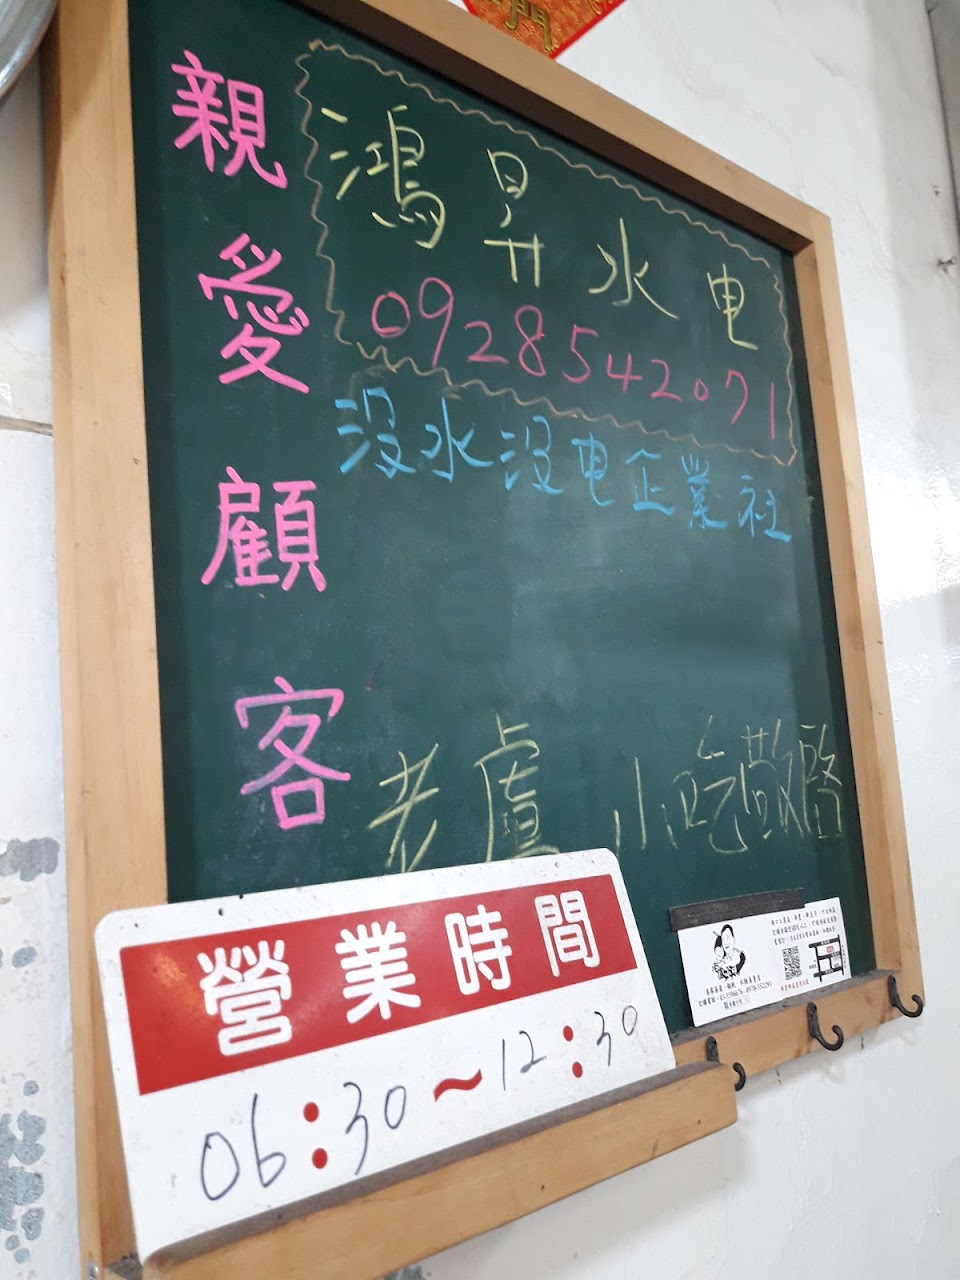 親愛顧客
鴻昇水电
0928542071
没水没电企業社
老盧小吃敬啓
營業時間
06:30~12:30
門